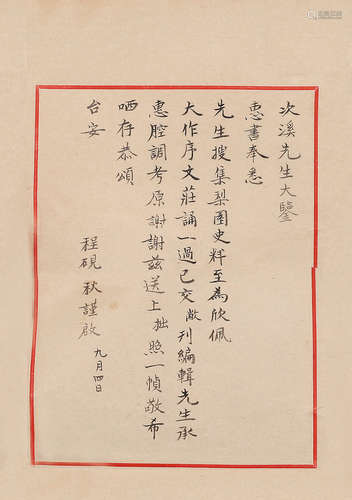 次溪先生大鑒
惠書奉悉
先生搜集梨園史料至為欣佩
大作序文莊誦一過已交敝刊編輯先生承
惠腔調考原謝謝茲送上拙照一幀敬希
哂存恭頌
台安
程硯秋謹啟 九月四日